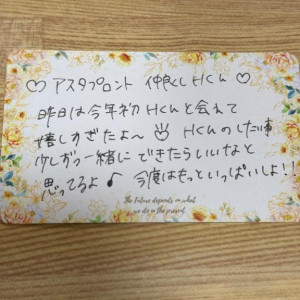 ♡ アスタプロント 仲良し Hくん ♡
昨日は今年初Hくんと会えて
嬉しすぎたよ〜 Hくんのしたい事
少しずつ一緒にできたらいいなと
思ってるよ♪ 今度はもっといっぱいしよ!!
The future depends on what
we do in the present.